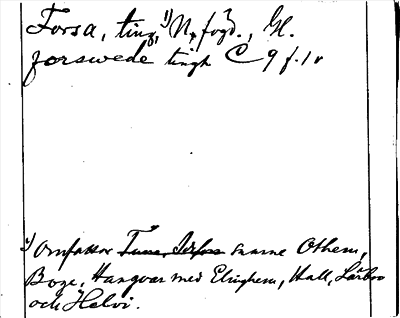 Forsa, ting, 1) N. fögd., Gl.
forswede tingh C 9 f. 1 v
1) Omfattar Tuna, socknarne Othem,
Boge, Hangvar med Elinghem, Hall, Lärbro
och Helvi.